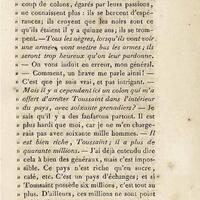 coup de colons, égarés par leurs passions,
ne connaissent plus : ils se bercent d'espé-
rances; ils croyent que les noirs sont ce
qu'ils étaient il y a quinze ans; ils se trom-
pent. — Tous les nègres, lorsqu'ils vont voir
une armée, vont mettre bas les armes; ils
seront trop heureux qu'on leur pardonne.
— On vous induit en erreur, mon général.
— Comment, un brave me parle ainsi! —
C'est que je suis vrai, et pas intrigant. —
Mais il y a cependant ici un colon qui m'a
offert d'arrêter Toussaint dans l'intérieur
du pays, avec soixante grenadiers? — Je
sais qu'il y a des fanfarons partout. Il est
plus hardi que moi, car je ne m'en charge-
rais pas avec soixante mille hommes. — Il
est bien riche, Toussaint; il a plus de
quarante millions. — J'ai déjà entendu dire
cela à bien des généraux, mais c'est impos-
sible. Ce pays n'est riche qu'en sucre,
café, etc. C'est un pays d'échange; et si
Toussaint possède six millions, c'est tout au
plus. D'ailleurs, ces millions ne sont point